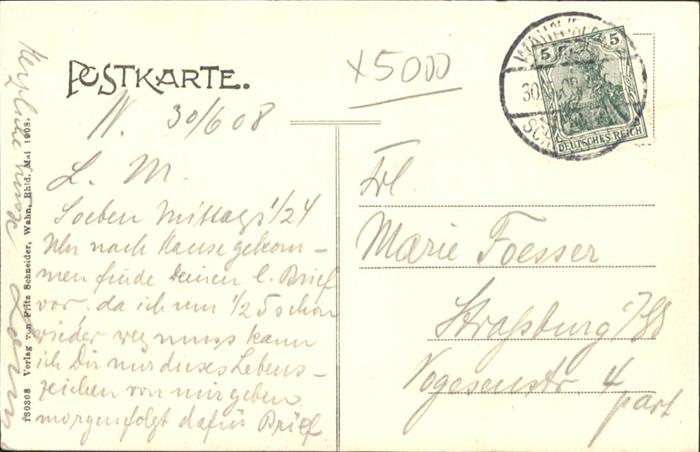 POSTKARTE.
x5000
W. 30/6 08
L. M.
Soeben Mittags 1/24
Uhr nach Hause gekom-
men finde Deinen l. Brief
vor, da ich um 1/2 5 schon
wieder weg muss kann
ich Dir nur dieses Lebens-
zeichen von mir geben
morgen folgt dafür Brief
130308 Verlag von Fritz Schneider, Wahn, Rhld. Mai 1908.
WAHN
30
SCH
5 5
DEUTSCHES REICH
Frl.
Marie Foesser
Straßburg i/Els
Vogesenstr. 4
part